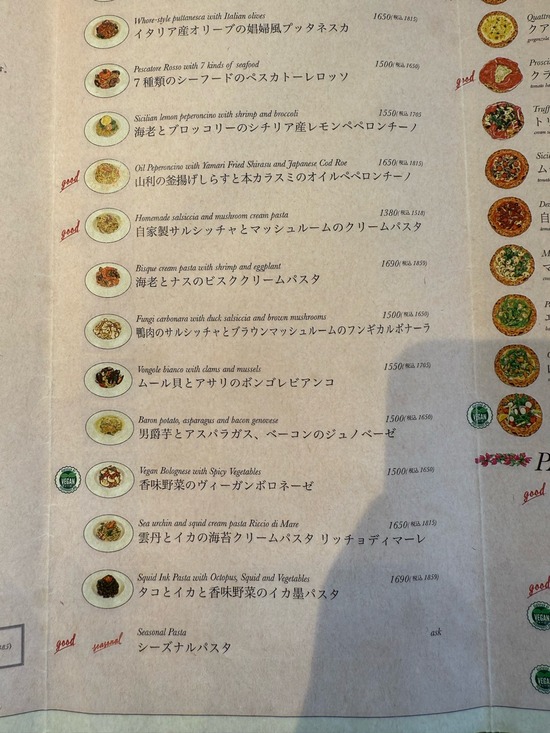 Whore-style puttanesca with Italian olives 1650(税込 1815)
イタリア産オリーブの娼婦風プッタネスカ
Pescatore Rosso with 7 kinds of seafood 1500(税込 1650)
7種類のシーフードのペスカトーレロッソ
Sicilian lemon peperoncino with shrimp and broccoli 1550(税込 1705)
海老とブロッコリーのシチリア産レモンペペロンチーノ
good
Oil Peperoncino with Yamari Fried Shirasu and Japanese Cod Roe 1650(税込 1815)
山利の釜揚げしらすと本カラスミのオイルペペロンチーノ
good
Homemade salsiccia and mushroom cream pasta 1380(税込 1518)
自家製サルシッチャとマッシュルームのクリームパスタ
Bisque cream pasta with shrimp and eggplant 1690(税込 1859)
海老とナスのビスククリームパスタ
Fungi carbonara with duck salsiccia and brown mushrooms 1500(税込 1650)
鴨肉のサルシッチャとブラウンマッシュルームのフンギカルボナーラ
Vongole bianco with clams and mussels 1550(税込 1705)
ムール貝とアサリのボンゴレビアンコ
Baron potato, asparagus and bacon genovese 1500(税込 1650)
男爵芋とアスパラガス、ベーコンのジュノベーゼ
VEGAN
Vegan Bolognese with Spicy Vegetables 1500(税込 1650)
香味野菜のヴィーガンボロネーゼ
Sea urchin and squid cream pasta Riccio di Mare 1650(税込 1815)
雲丹とイカの海苔クリームパスタ リッチョディマーレ
Squid Ink Pasta with Octopus, Squid and Vegetables 1690(税込 1859)
タコとイカと香味野菜のイカ墨パスタ
good seasonal
Seasonal Pasta ask
シーズナルパスタ
Quattro
クア
good
Prosci
クラ
Truff
トリ
Sici
ム
自
マ
VEGAN
P
good
good
VEGAN
VEGAN